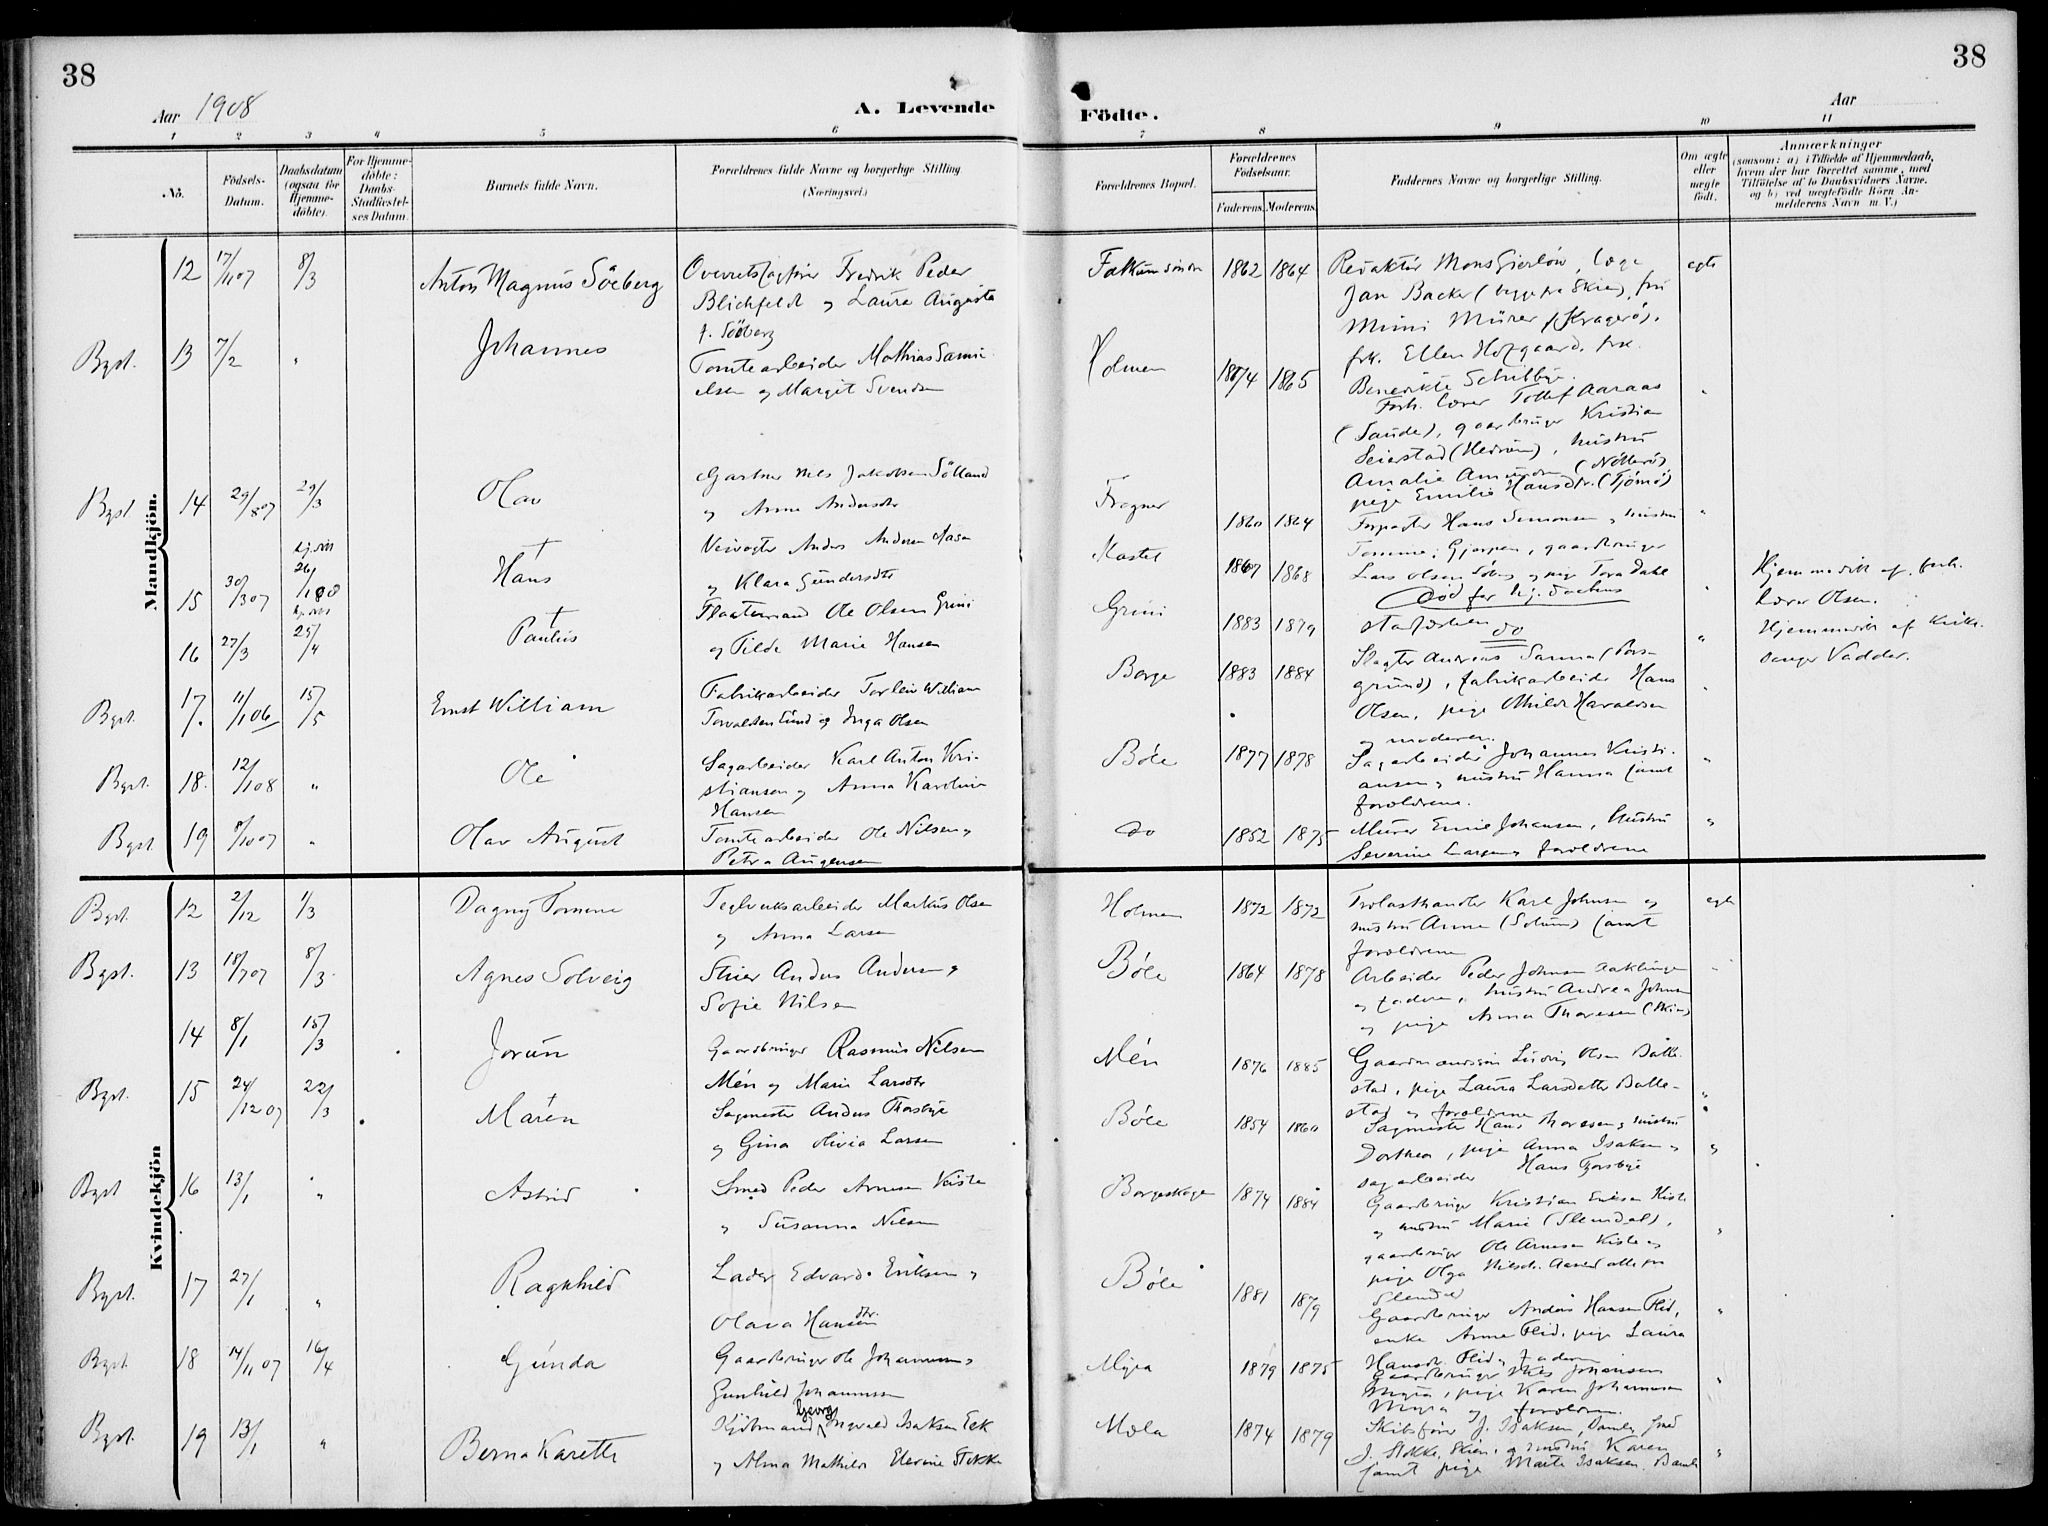 38
38
Aar 1908
A. Levende
Födte.
Aar
1 2 3 4 5 6 7 8 9 10 11
No.
Födsels-
Datum.
Daabsdatum
(ogsaa for
Hjemme-
döbte).
For Hjemme-
döbte:
Daabs-
Stadfæstel-
ses Datum.
Barnets fulde Navn.
Forældrenes fulde Navne og borgerlige Stilling
(Næringsvei.)
Forældrenes Bopæl.
Forældrenes
Födselsaar.
Faderens.
Moderens.
Faddernes Navne og borgerlige Stilling.
Om ægte
eller
uægte
födt.
Anmærkninger
(saasom: a) i Tilfælde af Hjemmedaab,
hvem der har forrettet samme, med
Tilföielse af to Daabsvidners Navne.
og b) ved uægtefödte Börn An-
melderens Navn m. V.)
Mandkjön.
12 17/11 07 8/3 Anton Magnus Söeberg Overretssagfører Fredrik Peder
Blichfeldt og Laura Augusta
f. Söeberg
1862 1864 Redaktør Mons Gierløw, læge
Jan Backer (begge fra Skien), fru
Mimi Mürer (Kragerø),
frk. Ellen Hofgaard, frk.
Benedikte Schilbye.
egte
Bgst. 13 7/2 " Johannes Tomtearbeider Mathias Samu-
elsen og Margit Svendsen
Holmen 1874 1865 Forh. lærer Tollef Aaraas
(Saude), gaardbruger Kristian
Seierstad (Hedrum), hustru
Amalie Amundsen (Nötterö)
pige Emilie Hansdtr. (Tjömö)
"
Bgst 14 29/8 07 29/3 Olav Gartner Nils Jakobsen
og Anne Andersdtr
Frogner 1860 1864 Forpagter Hans Simonsen og hustru
Tomine, Gjerpen, gaardbruger
Lars Olsen og pige Tora Dahl
"
15 30/3 07 26/1 08 Hans Veivogter Anders Andersen
og Klara Gundersdtr
Kastet 1867 1868 Död før hj. daabens
stadfæstelsen
"
Hjemmedöbt af forh.
Lærer Olsen.
16 27/3 25/4 Paulus Ole Olsen Grini
og Tilde Marie Hansen
Grini 1883 1879 do
"
Hjemmedöbt af Kirke-
sanger Vadder.
Bgst. 17 11/1 06 15/5 Ernst William Fabrikarbeider Torleiv William
Torvaldsen Lund og Inga Olsen
Borge 1883 1884 Slagter Andreas Sanna (Pors-
grund), fabrikarbeider Hans
Olsen, pige Mhilde Haraldsen
og moderen.
"
Bgst. 18. 12/1 08 " Ole Sagarbeider Karl Anton Kri-
stiansen og Anna Karoline
Hansen
Böle 1877 1878 Sagarbeider Johannes Kristi-
ansen og hustru Hanna samt
forældrene.
"
Bgst. 19 8/10 07 " Olav August Tomtearbeider Ole Nilsen og
Petra Augensen
do 1852 1875 Murer Emil Johansen, hustru
Severine Larsen og forældrene
"
Kvindekjön
Bgst. 12 2/12 1/3 Dagny Tomine Teglverksarbeider Markus Olsen
og Anna Larsen
Holmen 1872 1872 Karl Johnsen og
hustru Anne (Solum) samt
forældrene
egte
Bgst. 13 18/7 07 8/3. Agnes Solveig Stuer Anders Andersen og
Sofie Nilsen
Böle 1864 1878 Arbeider Peder Johnsen
og faderen, hustru Andrea Johnsen
og pige Anna Thoresen (Skien)
"
14 8/1 15/3 Jorun Gaardbruger Rasmus Nilsen
Mén og Marie Larsdtr
Mén 1876 1885 Gaardmandssøn Ludvig Olsen Balle-
stad, pige Laura Larsdatter Balle-
stad og forældrene
"
Bgst. 15 24/12 07 22/3 Maren Sagmester Anders Thorsbye
og Gina Olivia Larsen
Böle 1854 1860 Sagmester Hans Thoresen og hustru
Dorthea, pige Anna Isaksen og
sagarbeider Hans Thorsbye
"
Bgst 16 13/1 " Astrid Smed Peder Arnesen Kiste
og Susanna Nilsen
Borgeskogen 1874 1884 Gaardbruger Kristian Eriksen Kiste
og hustru Marie (Slemdal),
gaardbruger Ole Arnesen Kiste og
pige Olga Nilsen alle fra
Slemdal
"
Bgst. 17 27/1 " Ragnhild Lader Edvard Eriksen og
Olava Hansdtr.
Böle 1881 1879 Gaardbruger Anders Hansen Flid,
enke Anne Flid, pige Laura
Hansdtr. Flid og faderen
"
Bgst. 18 14/11 07 16/4 Gunda Gaardbruger Ole Johannessen og
Gunhild Johannessen
Myra 1879 1875 Gaardbruger Nils Johansen
Myra, pige Karen Johannesen
Myra og forældrene.
"
Bgst. 19 13/1 " Berna Karette Kjöbmand Georg Ingvald Isaksen Eek
og Alma Mathilde Elevine Stokke
Mæla 1874 1879 Skibsfører J. Isaksen, Bamle, smed
J. Stokke, Skien, og hustru Karen
samt pige Marte Isaksen, Bamle
"